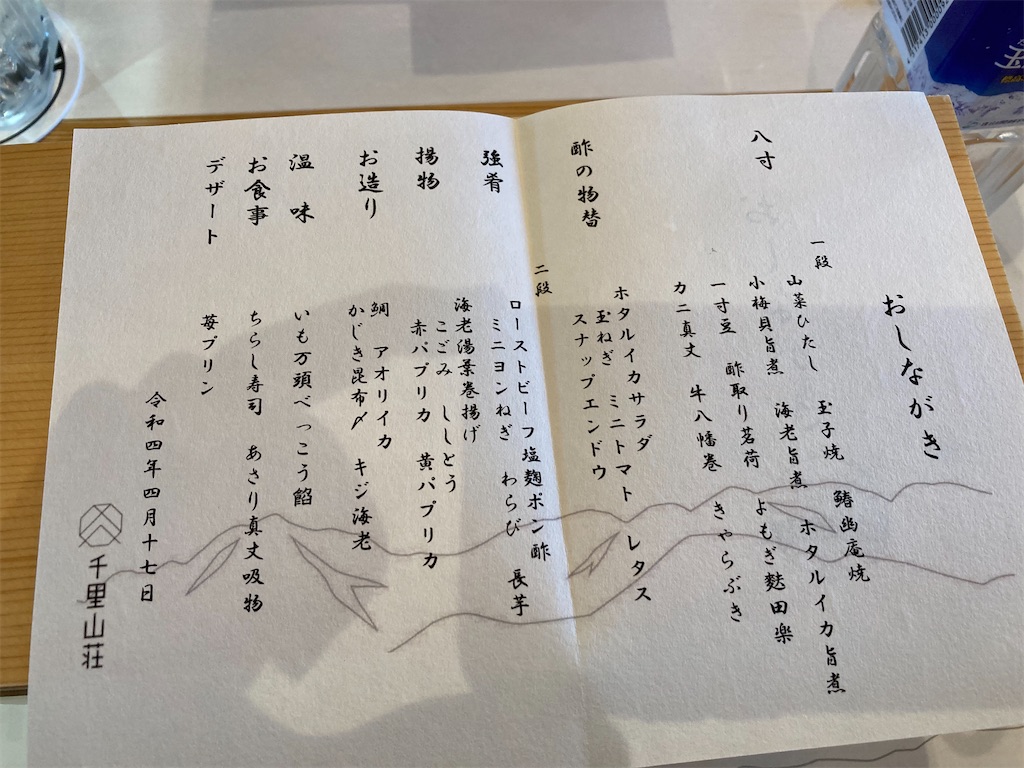 おしながき
八寸
一段
山菜ひたし 玉子焼 鰆幽庵焼
小梅貝旨煮 海老旨煮 ホタルイカ旨煮
一寸豆 酢取り茗荷 よもぎ麩田楽
カニ真丈 牛八幡巻 きゃらぶき
酢の物替
ホタルイカサラダ
玉ねぎ ミニトマト レタス
スナップエンドウ
二段
強肴
ローストビーフ塩麹ポン酢
ミニヨンねぎ わらび 長芋
揚物
海老湯葉巻揚げ
こごみ ししとう
赤パプリカ 黄パプリカ
お造り
鯛 アオリイカ
かじき昆布〆 キジ海老
温味
いも万頭べっこう餡
お食事
ちらし寿司 あさり真丈吸物
デザート
苺プリン
令和四年四月十七日
千里山荘